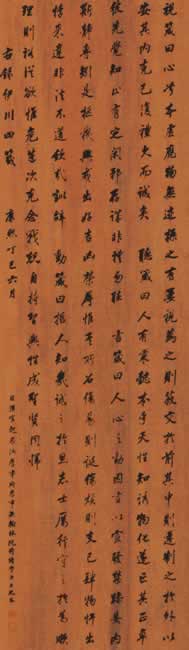 視箴曰心兮本虛應物無迹操之有要視為之則蔽交於前其中則遷制之於外以
安其內克己復禮久而誠矣 聽箴曰人有秉彝本乎天性知誘物化遂亡其正卓
彼先覺知止有定閑邪存誠非禮勿聽 言箴曰人心之動因言以宣發禁躁妄內
斯靜專矧是樞機興戎出好吉凶榮辱惟其所召傷易則誕傷煩則支己肆物忤出
悖來違非法不道欽哉訓辭 動箴曰哲人知幾誠之於思志士厲行守之於為順
理則裕從欲惟危造次克念戰兢自持習與性成聖賢同歸
右錄伊川四箴
康熙丁巳六月
日講官起居注詹事府詹事兼翰林院侍讀學士